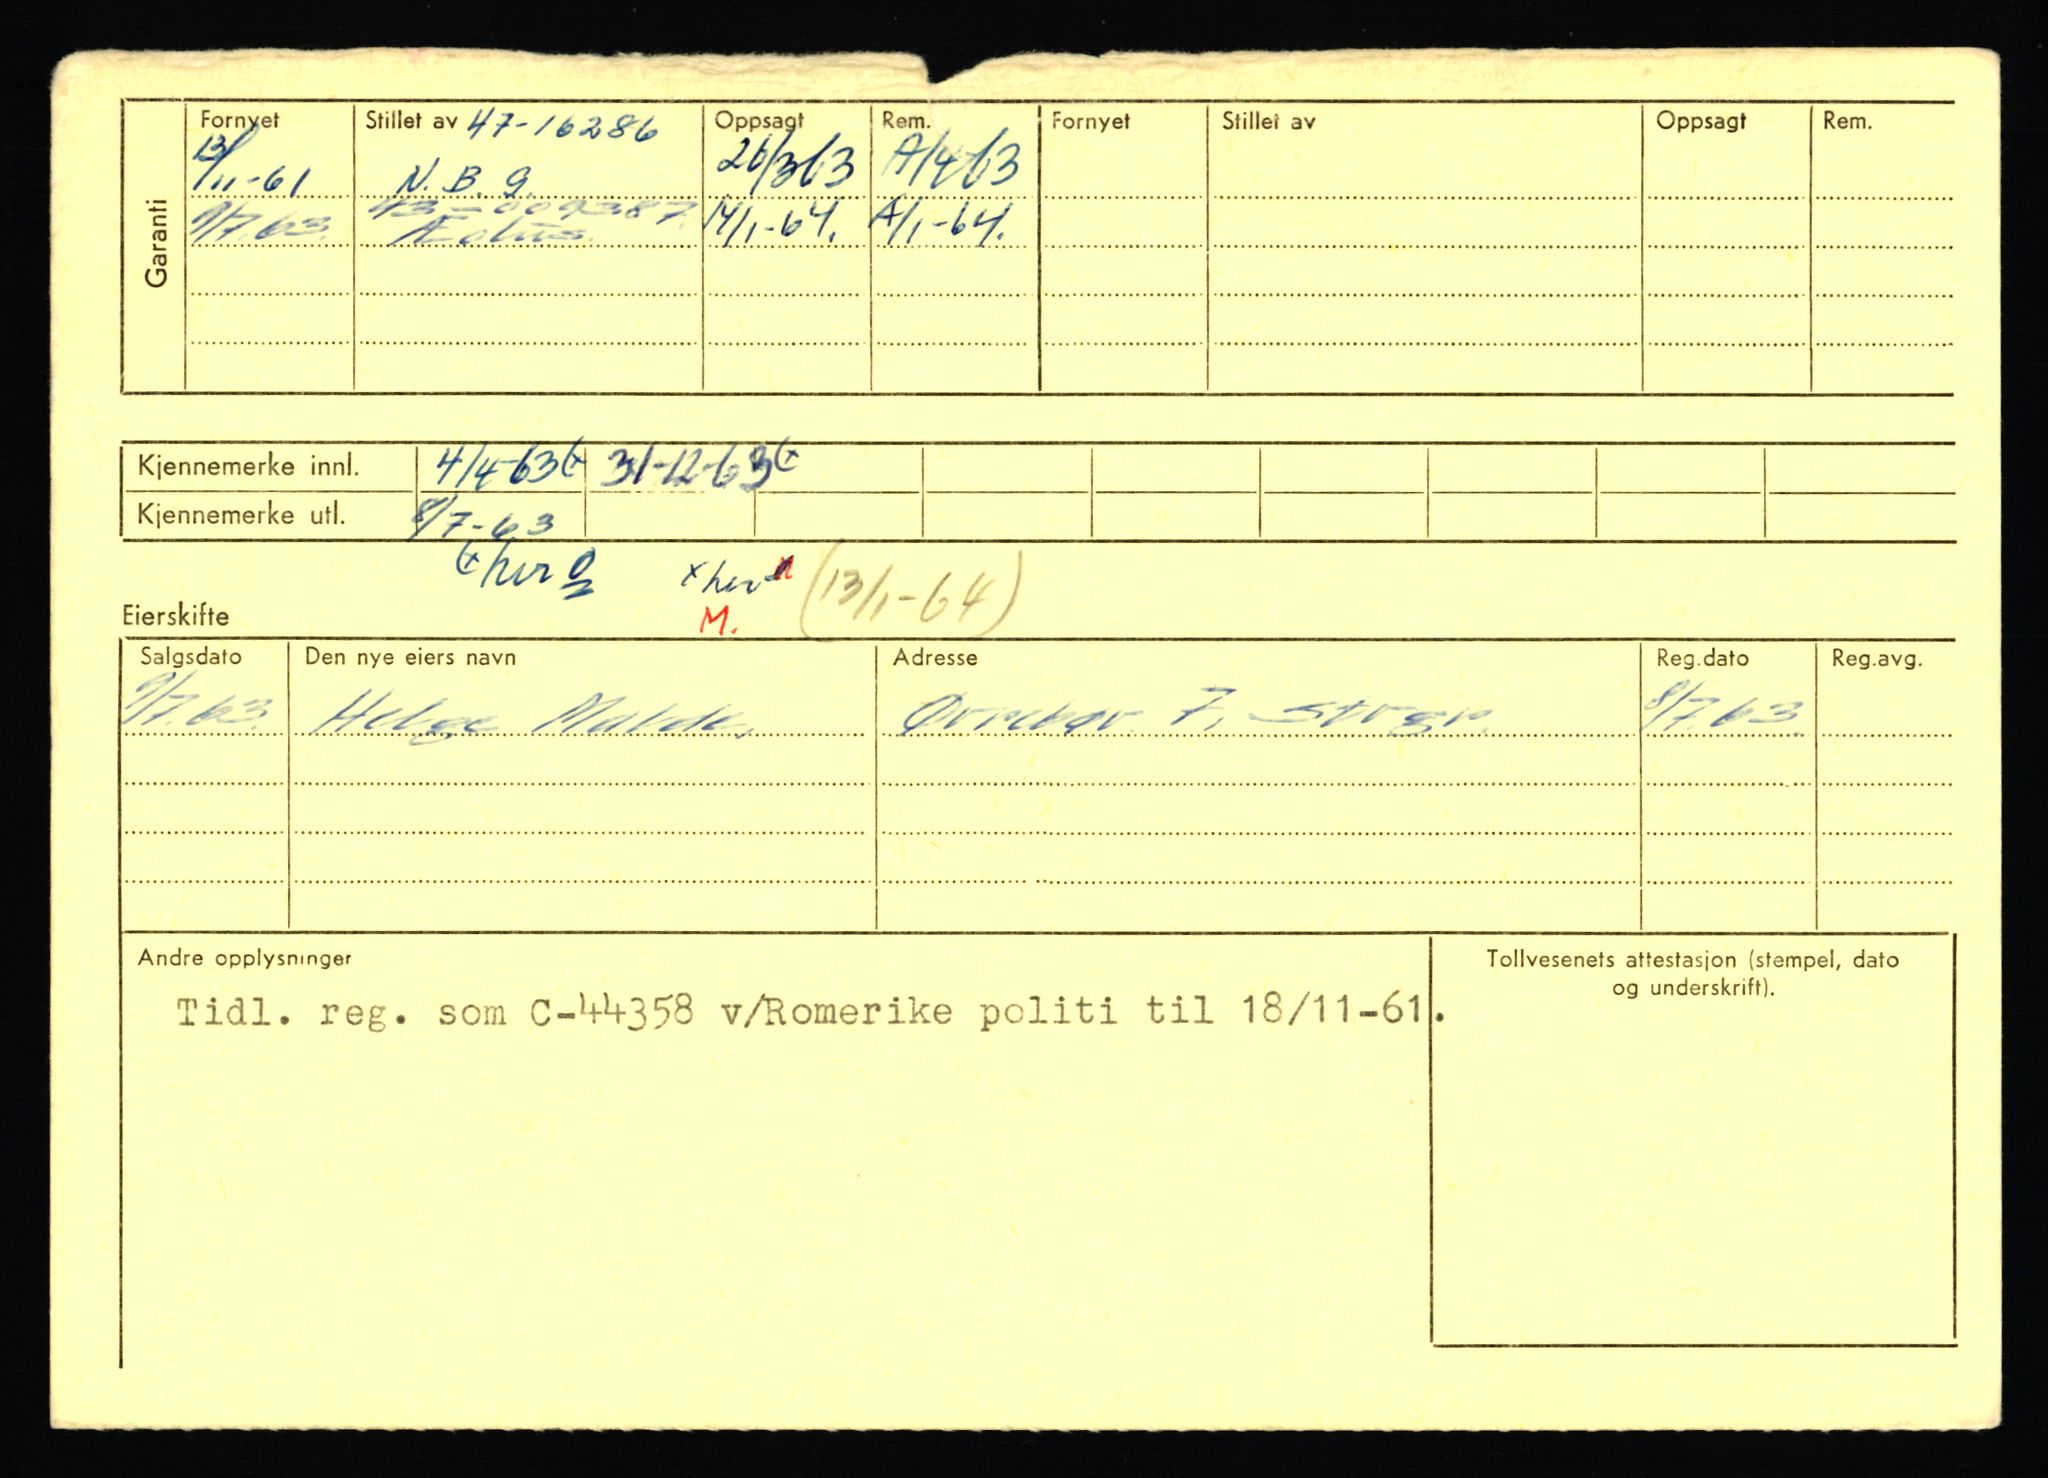 Garanti
Fornyet Stillet av 47-16286 Oppsagt Rem. Fornyet Stillet av Oppsagt Rem.
13/11-61 N. B. g. 26/3 63 A/4-63
9/7.63. 43-009387. 14/1-64. A/1-64.
Æolus.
Kjennemerke innl. 4/4-63 (x 31-12-63 (x
Kjennemerke utl. 8/7-63
(x her x her (13/1-64)
M.
Eierskifte
Salgsdato Den nye eiers navn Adresse Reg.dato Reg.avg.
9/7.63. Helge Malde, 7, Stvgr. 8/7.63.
Andre opplysninger
Tidl. reg. som C-44358 v/Romerike politi til 18/11-61.
Tollvesenets attestasjon (stempel, dato
og underskrift).